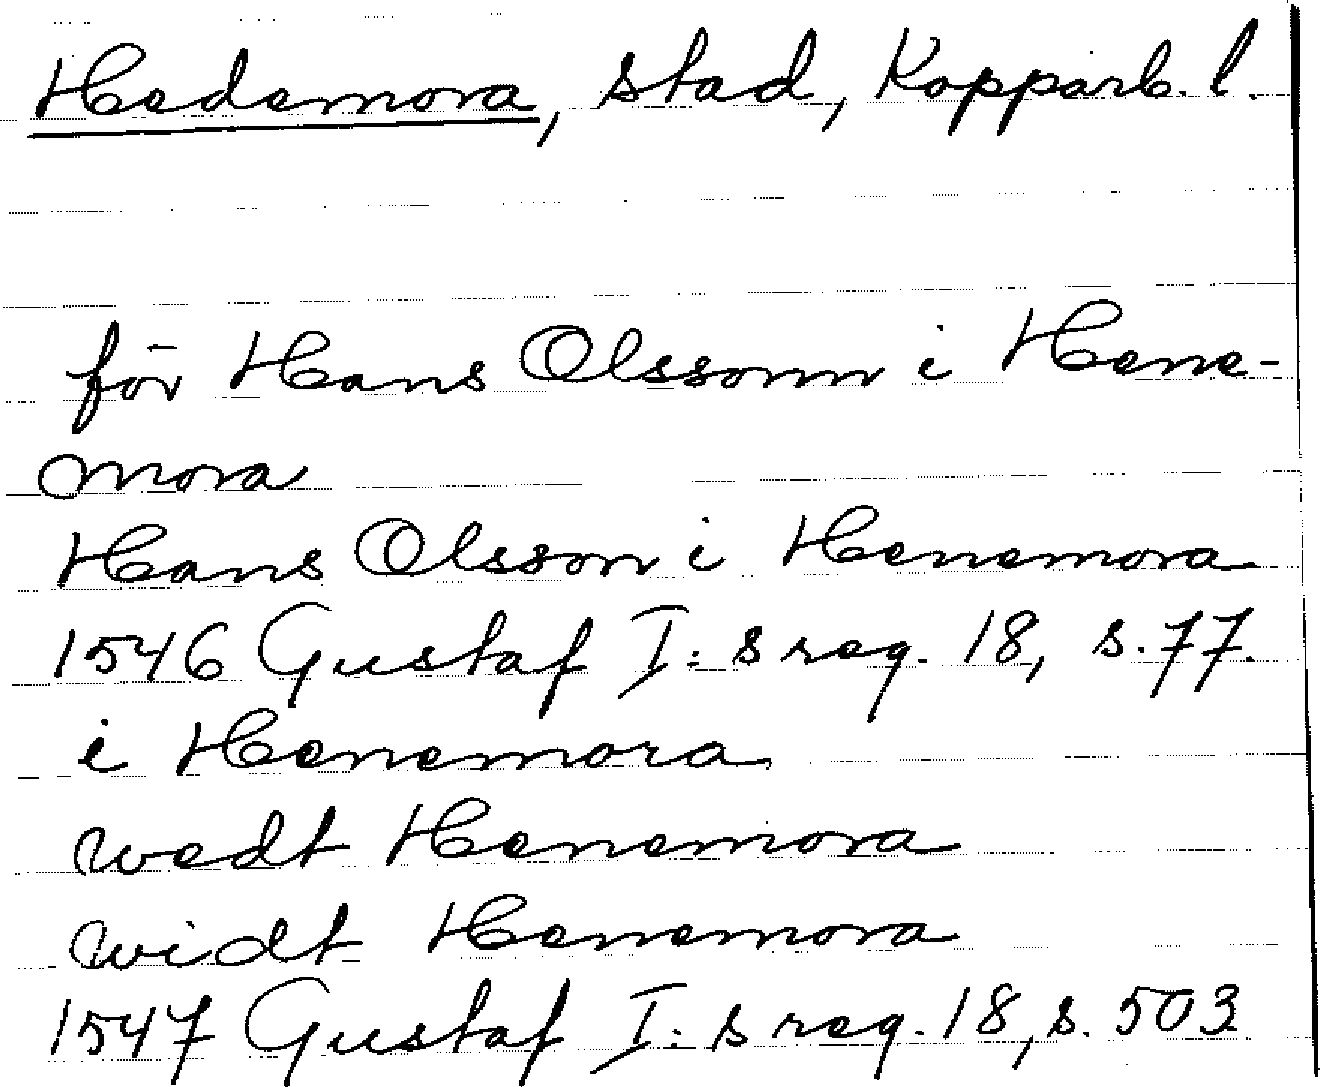 Hedemora, stad, Kopparb. l.
för Hans Olssonn i Hene-
mora
Hans Olsson i Henemora
1546 Gustaf I:s reg. 18, s. 77.
i Henemora
wedt Henemora
widt Henemora
1547 Gustaf I:s reg. 18, s. 503